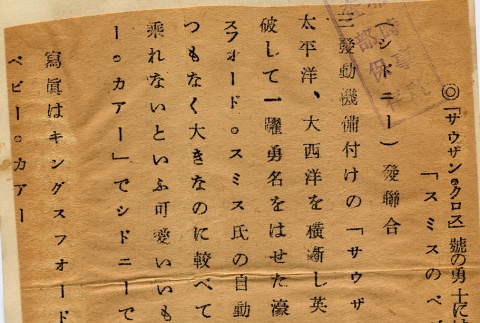 ◎「サウザン。クロス」號の勇士に
「スミスのベ
(シドニー)發聯合
三發動機備付けの「サウザ
太平洋、大西洋を橫斷し英
破して一躍勇名をはせた濠
スフォード。スミス氏の自動
つもなく大きなのに較べて
乘れないといふ可愛いいも
ー。カアー」でシドニーで
寫眞はキングスフォード
ベビー。カアー